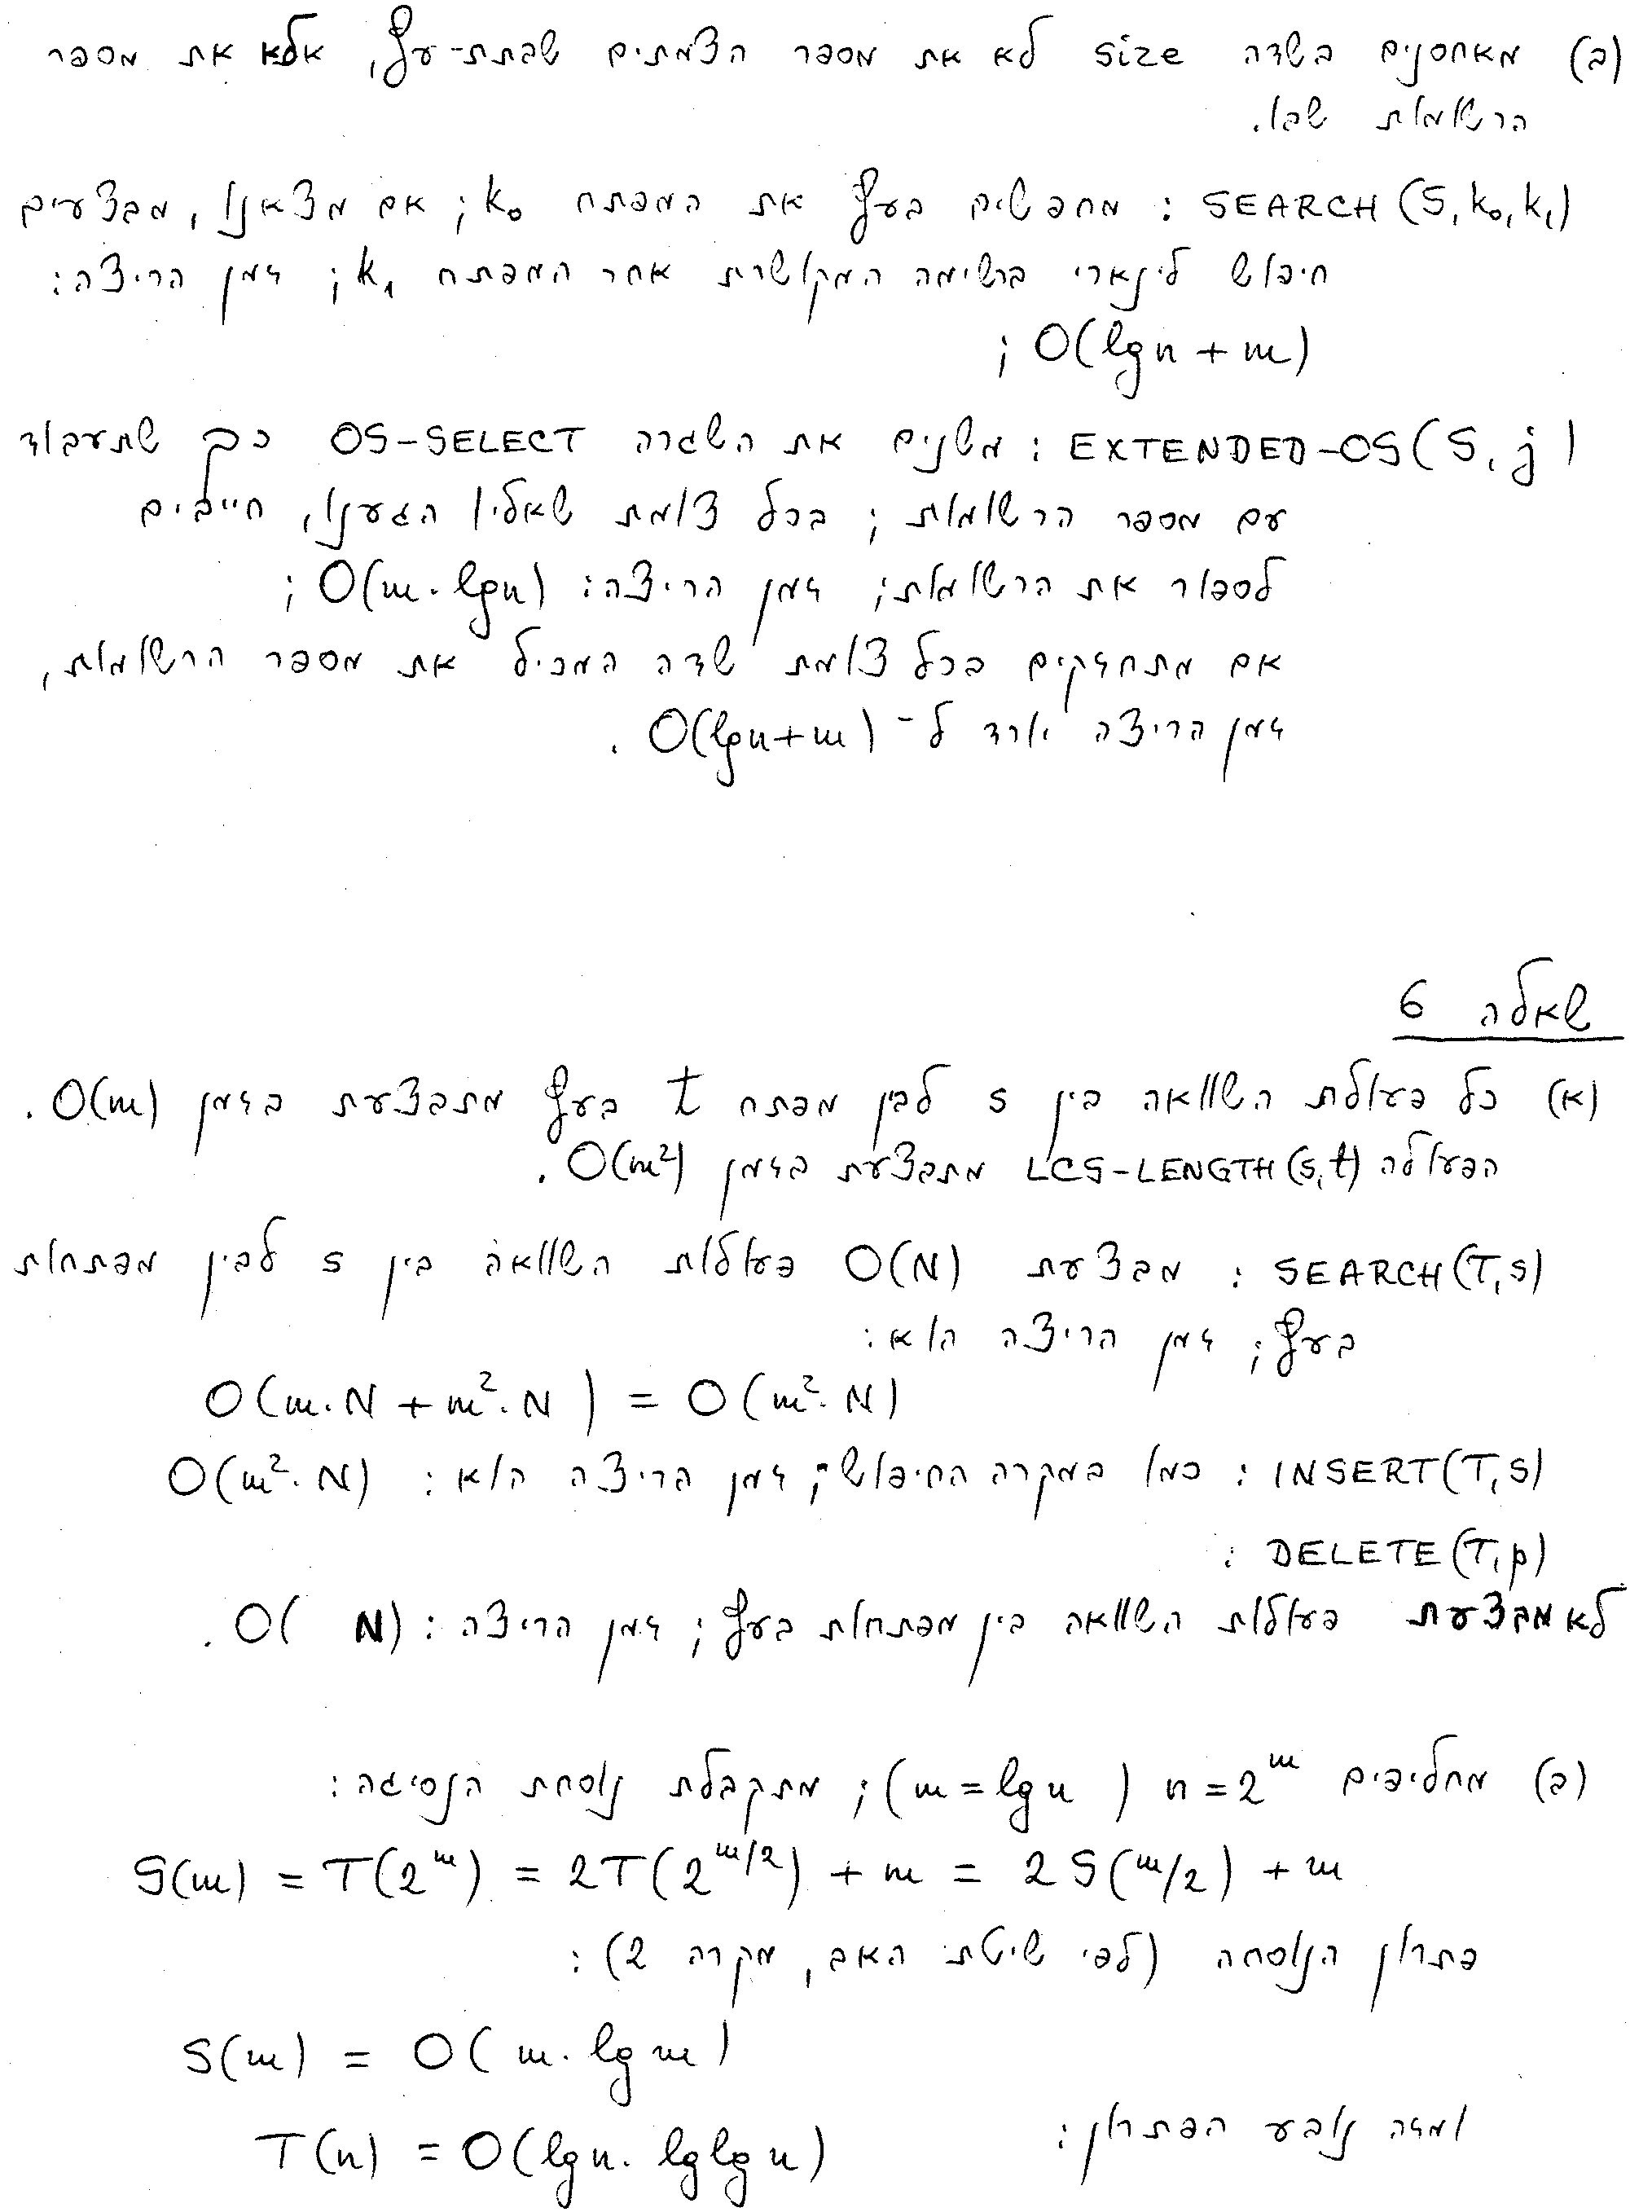 (ב) מאחסנים בשדה size לא את מספר הצמתים שבתת-עץ, אלא את מספר
הרשומות שבו.
SEARCH (S, k₀, k₁) : מחפשים בעץ את המפתח k₀; אם מצאנו, מבצעים
חיפוש לינארי ברשימה המקושרת אחר המפתח k₁; זמן הריצה:
O(lgn + m) ;
EXTENDED-OS(S, j) : משנים את השגרה OS-SELECT כך שתעבוד
עם מספר הרשומות; בכל צומת שאליו הגענו, חייבים
לספור את הרשומות; זמן הריצה: O(m·lgn) ;
אם מתחזקים בכל צומת שדה המכיל את מספר הרשומות,
זמן הריצה יורד ל- O(lgn+m) .
שאלה 6
(א) כל פעולת השוואה בין s לבין מפתח t בעץ מתבצעת בזמן O(m) .
הפעולה LCS-LENGTH(s,t) מתבצעת בזמן O(m²) .
SEARCH(T,s) : מבצעת O(N) פעולות השוואה בין s לבין מפתחות
בעץ; זמן הריצה הוא:
O(m·N + m²·N) = O(m²·N)
INSERT(T,s) : כמו במקרה החיפוש; זמן הריצה הוא: O(m²·N)
DELETE(T,p) :
לא מבצעת פעולות השוואה בין מפתחות בעץ; זמן הריצה: O( N) .
(ב) מחליפים n = 2^m (m = lgn) ; מתקבלת נוסחת הנסיגה:
S(m) = T(2^m) = 2T(2^(m/2)) + m = 2S(m/2) + m
פתרון הנוסחה (לפי שיטת האב, מקרה 2) :
S(m) = O(m·lgm)
ומזה נובע הפתרון: T(n) = O(lgn·lglgn)